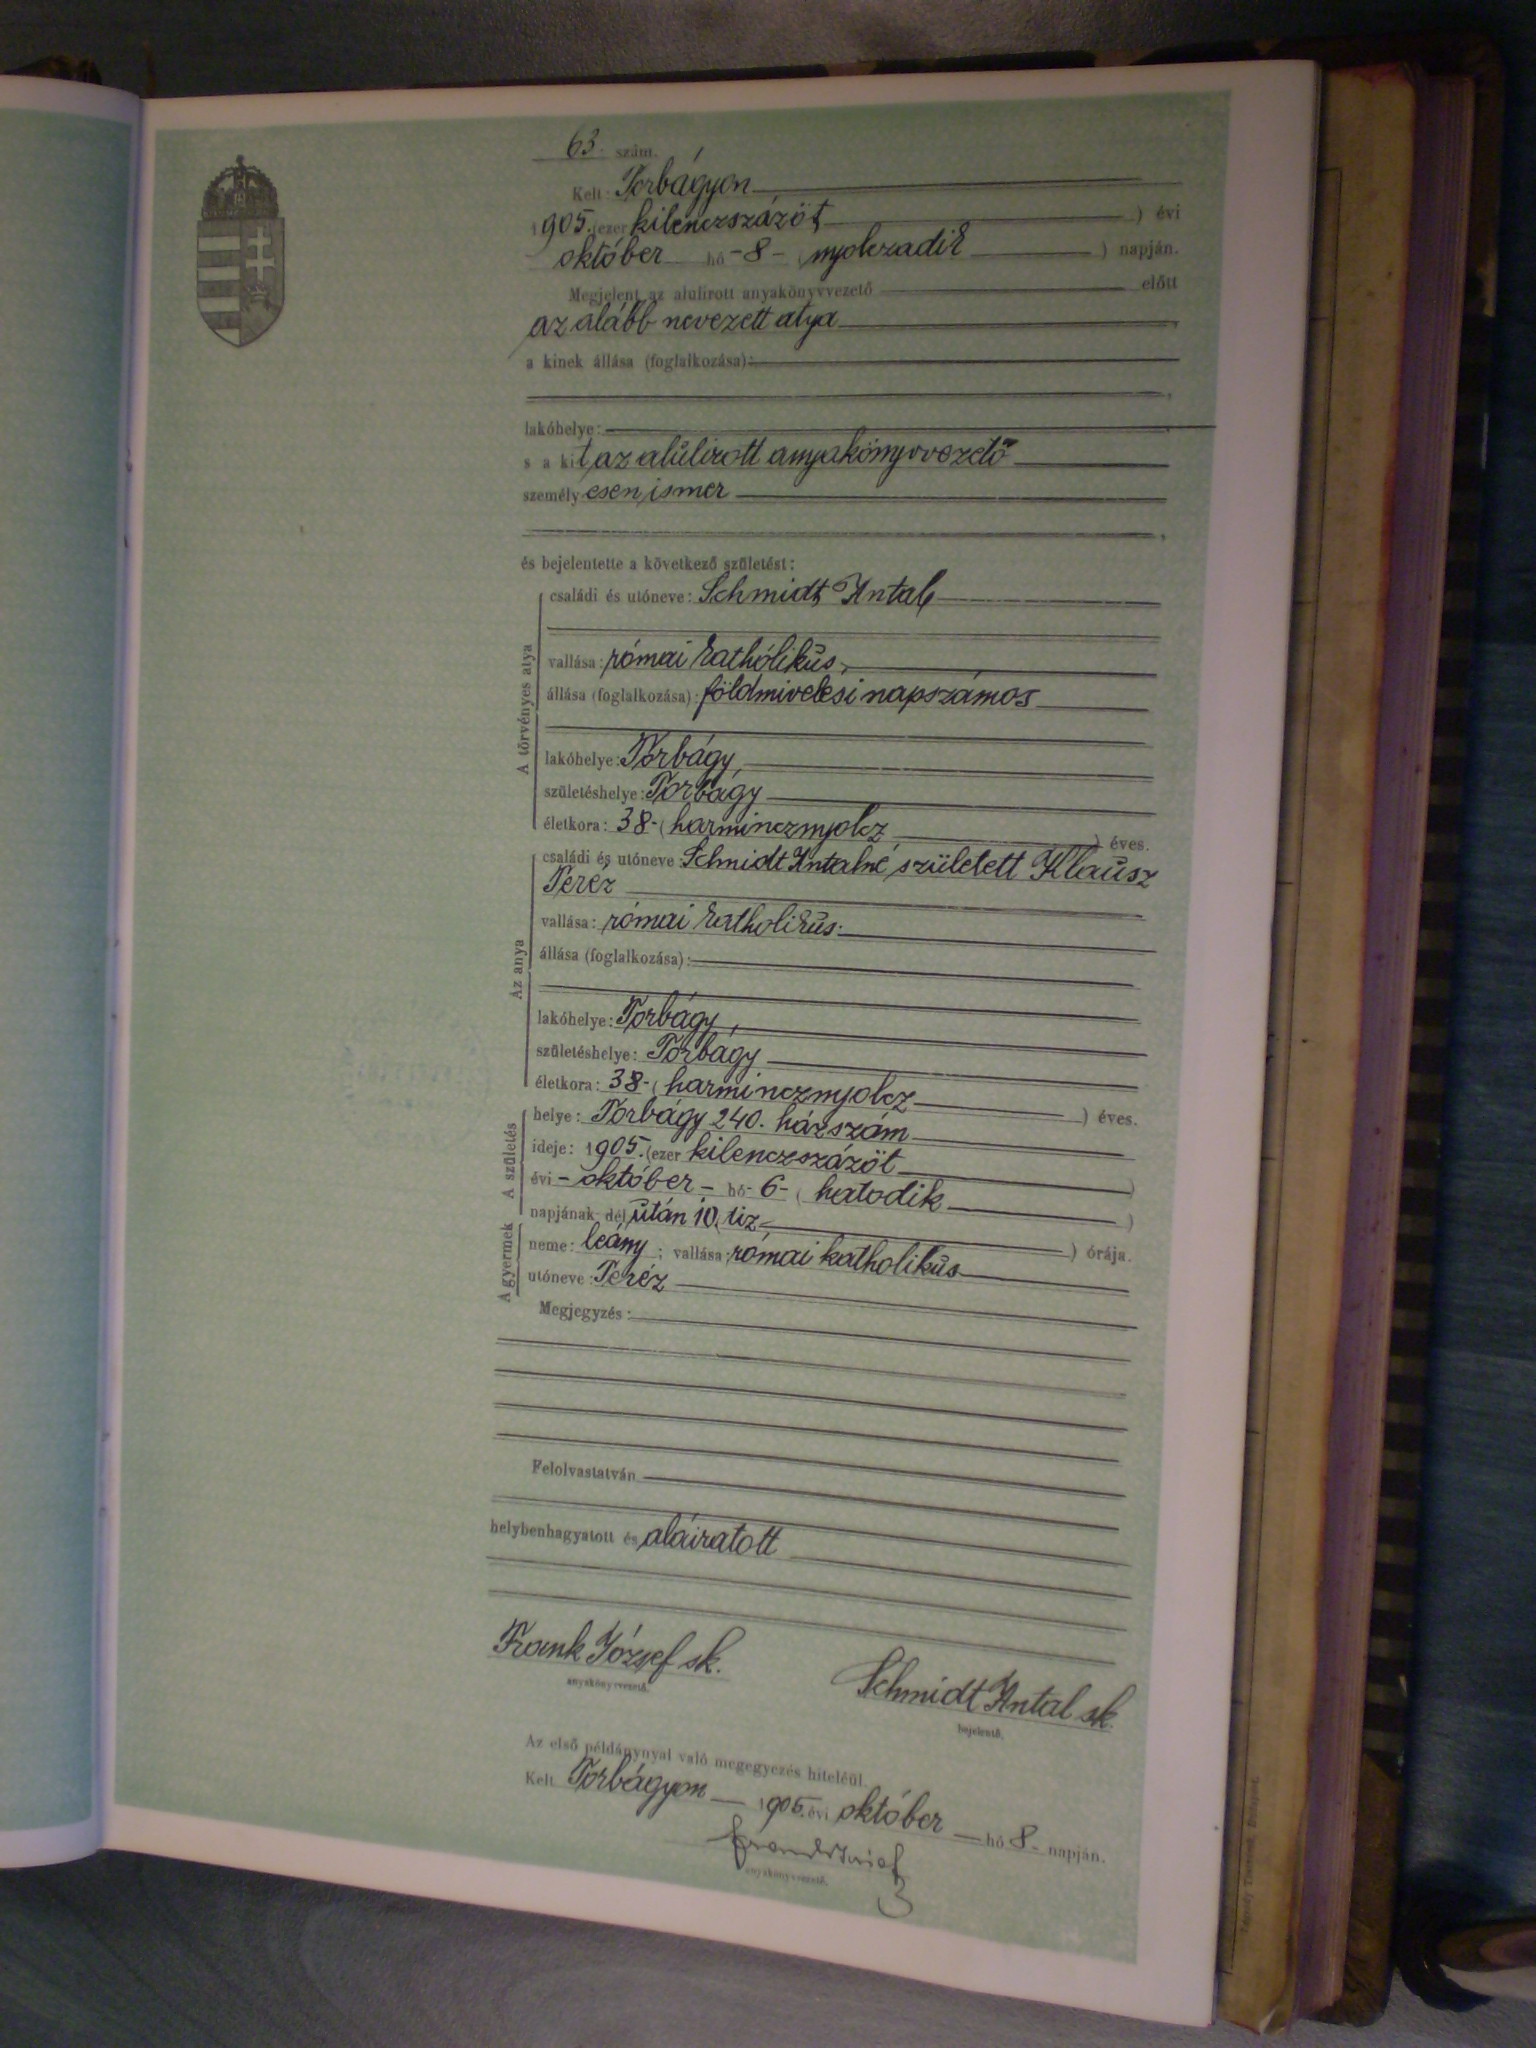 63. szám.
Kelt: Torbágyon
1905. (ezer kilenczszázöt) évi
október hó -8- (nyolczadik) napján.
Megjelent az alulirott anyakönyvvezető előtt
az alább nevezett atya
a kinek állása (foglalkozása):
lakóhelye:
s a kit az alulirott anyakönyvvezető
személyesen ismer
és bejelentette a következő születést:
családi és utóneve: Schmidt Antal
vallása: római katholikus
állása (foglalkozása): földmivelési napszámos
lakóhelye: Torbágy
születéshelye: Torbágy
életkora: 38- (harmincznyolcz) éves.
A törvényes atya
családi és utóneve: Schmidt Antalné született Klausz
Teréz
vallása: római katholikus.
állása (foglalkozása):
lakóhelye: Torbágy
születéshelye: Torbágy
életkora: 38- (harmincznyolcz) éves.
Az anya
helye: Torbágy 240. házszám
ideje: 1905. (ezer kilenczszázöt)
évi - október - hó -6- (hatodik)
napjának dél után 10 (tiz) órája.
A születés
neme: leány; vallása: római katholikus
utóneve: Teréz
A gyermek
Megjegyzés:
Felolvastatván
helybenhagyatott és aláiratott
Frank József sk.
anyakönyvvezető.
Schmidt Antal sk.
bejelentő.
Az első példánynyal való megegyezés hiteléül.
Kelt Torbágyon 1905. évi október hó 8- napján.
Frank József
anyakönyvvezető.